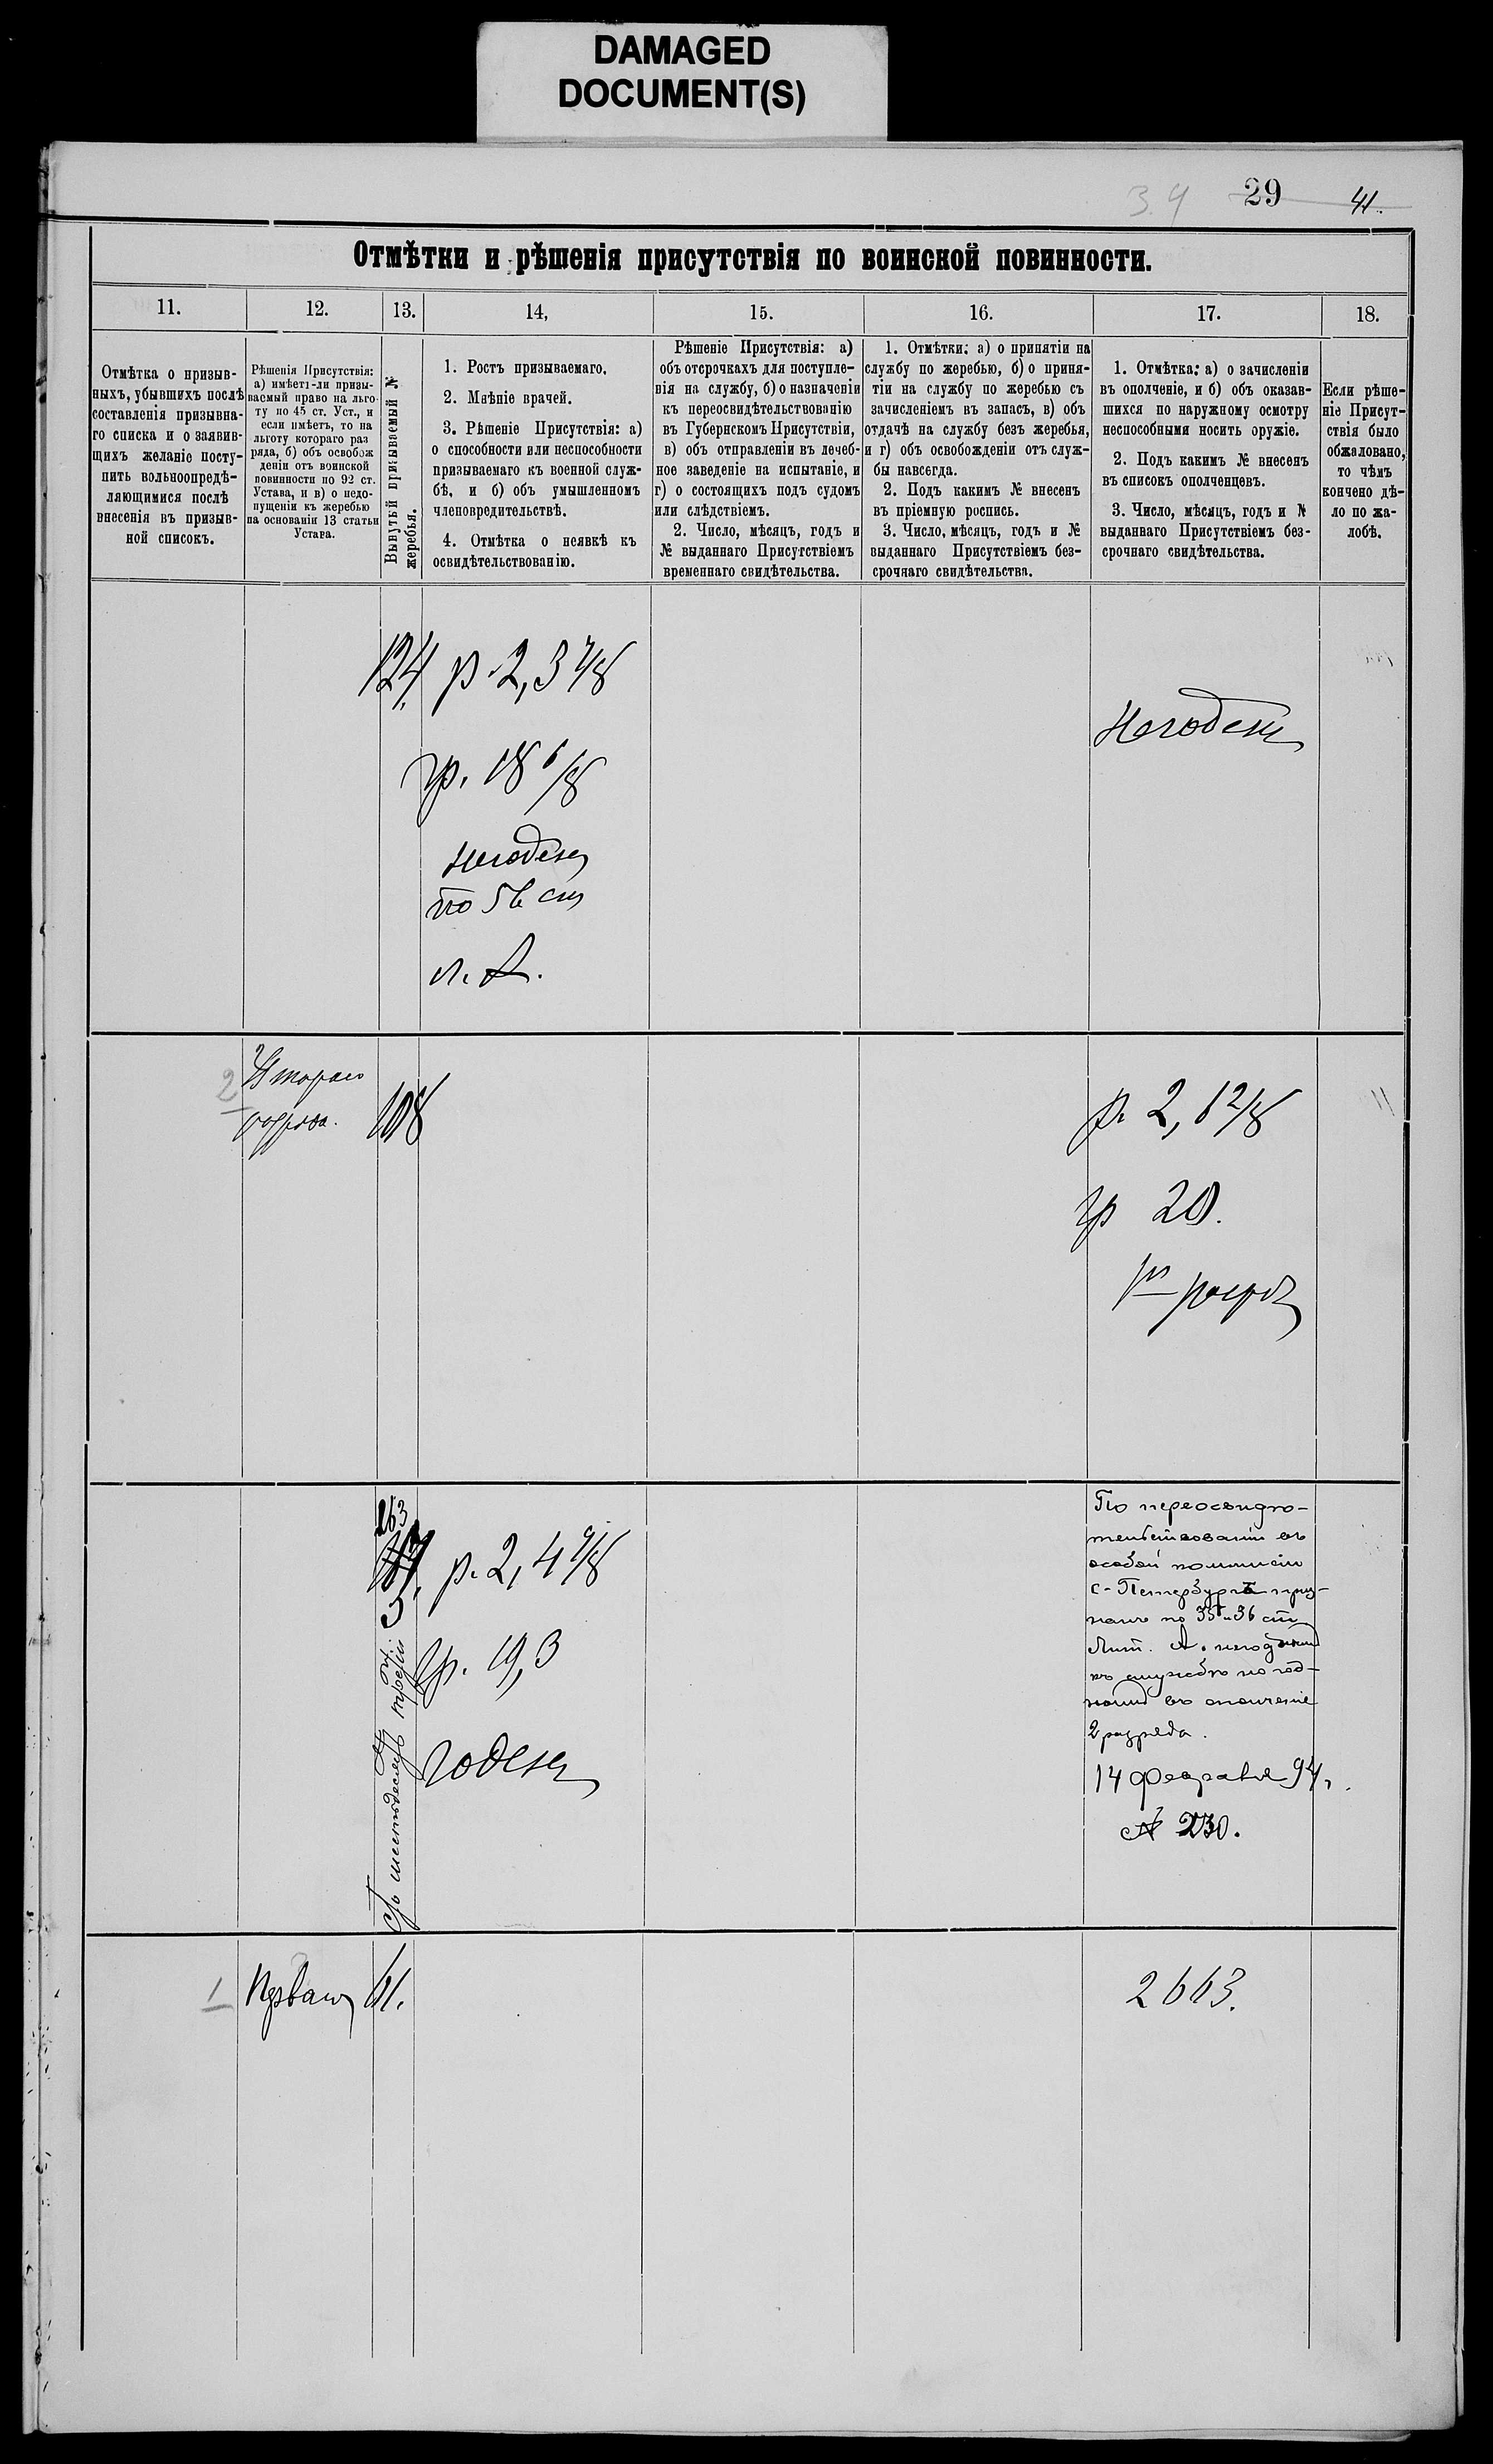 DAMAGED
DOCUMENT(S)
34 29 41.
Отмѣтки и рѣшенія присутствія по воинской повинности.
11. 12. 13. 14, 15. 16. 17. 18.
Отмѣтка о призыв-
ныхъ, убывшихъ послѣ
составленія призывна-
го списка и о заявив-
щихъ желаніе посту-
пить вольноопредѣ-
ляющимися послѣ
внесенія въ призыв-
ной списокъ.
Рѣшенія Присутствія:
а) имѣетъ-ли призы-
ваемый право на льго-
ту по 45 ст. Уст., и
если имѣетъ, то на
льготу котораго раз
ряда, б) объ освобож
деніи отъ воинской
повинности по 92 ст.
Устава, и в) о недо-
пущеніи къ жеребью
на основаніи 13 статьи
Устава.
Вынутый призываемый №
жеребья.
1. Ростъ призываемаго.
2. Мнѣніе врачей.
3. Рѣшеніе Присутствія: а)
о способности или неспособности
призываемаго къ военной служ-
бѣ, и б) объ умышленномъ
членовредительствѣ.
4. Отмѣтка о неявкѣ къ
освидѣтельствованію.
Рѣшеніе Присутствія: а)
объ отсрочкахъ для поступле-
нія на службу, б) о назначеніи
къ переосвидѣтельствованію
въ Губернскомъ Присутствіи,
в) объ отправленіи въ лечеб-
ное заведеніе на испытаніе, и
г) о состоящихъ подъ судомъ
или слѣдствіемъ.
2. Число, мѣсяцъ, годъ и
№ выданнаго Присутствіемъ
временнаго свидѣтельства.
1. Отмѣтки: а) о принятіи на
службу по жеребью, б) о приня-
тіи на службу по жеребью съ
зачисленіемъ въ запасъ, в) объ
отдачѣ на службу безъ жеребья,
и г) объ освобожденіи отъ служ-
бы навсегда.
2. Подъ какимъ № внесенъ
въ пріемную роспись.
3. Число, мѣсяцъ, годъ и №
выданнаго Присутствіемъ без-
срочнаго свидѣтельства.
1. Отмѣтка: а) о зачисленіи
въ ополченіе, и б) объ оказав-
шихся по наружному осмотру
неспособными носить оружіе.
2. Подъ какимъ № внесенъ
въ списокъ ополченцевъ.
3. Число, мѣсяцъ, годъ и №
выданнаго Присутствіемъ без-
срочнаго свидѣтельства.
Если рѣше-
ніе Присут-
ствія было
обжаловано,
то чѣмъ
кончено дѣ-
ло по жа-
лобѣ.
124. р. 2, 3 7/8
гр. 18 6/8
Негоденъ
по 56 ст
л. А.
Негоденъ
2
Втораго
разряда.
108
р. 2, 6 2/8
гр 20.
1го разр
263
р. 2, 4 7/8
гр. 19,3
годенъ
По переосвидѣ-
тельствованіи въ
особой коммисіи
С-Петербурга приз-
нанъ по 35 и 36 ст
Лит. А. негоднымъ
къ службѣ но год-
нымъ въ ополченіе
2 разряда.
14 Февраля 94 г.
№ 230.
1 Перваго 61.
2663.